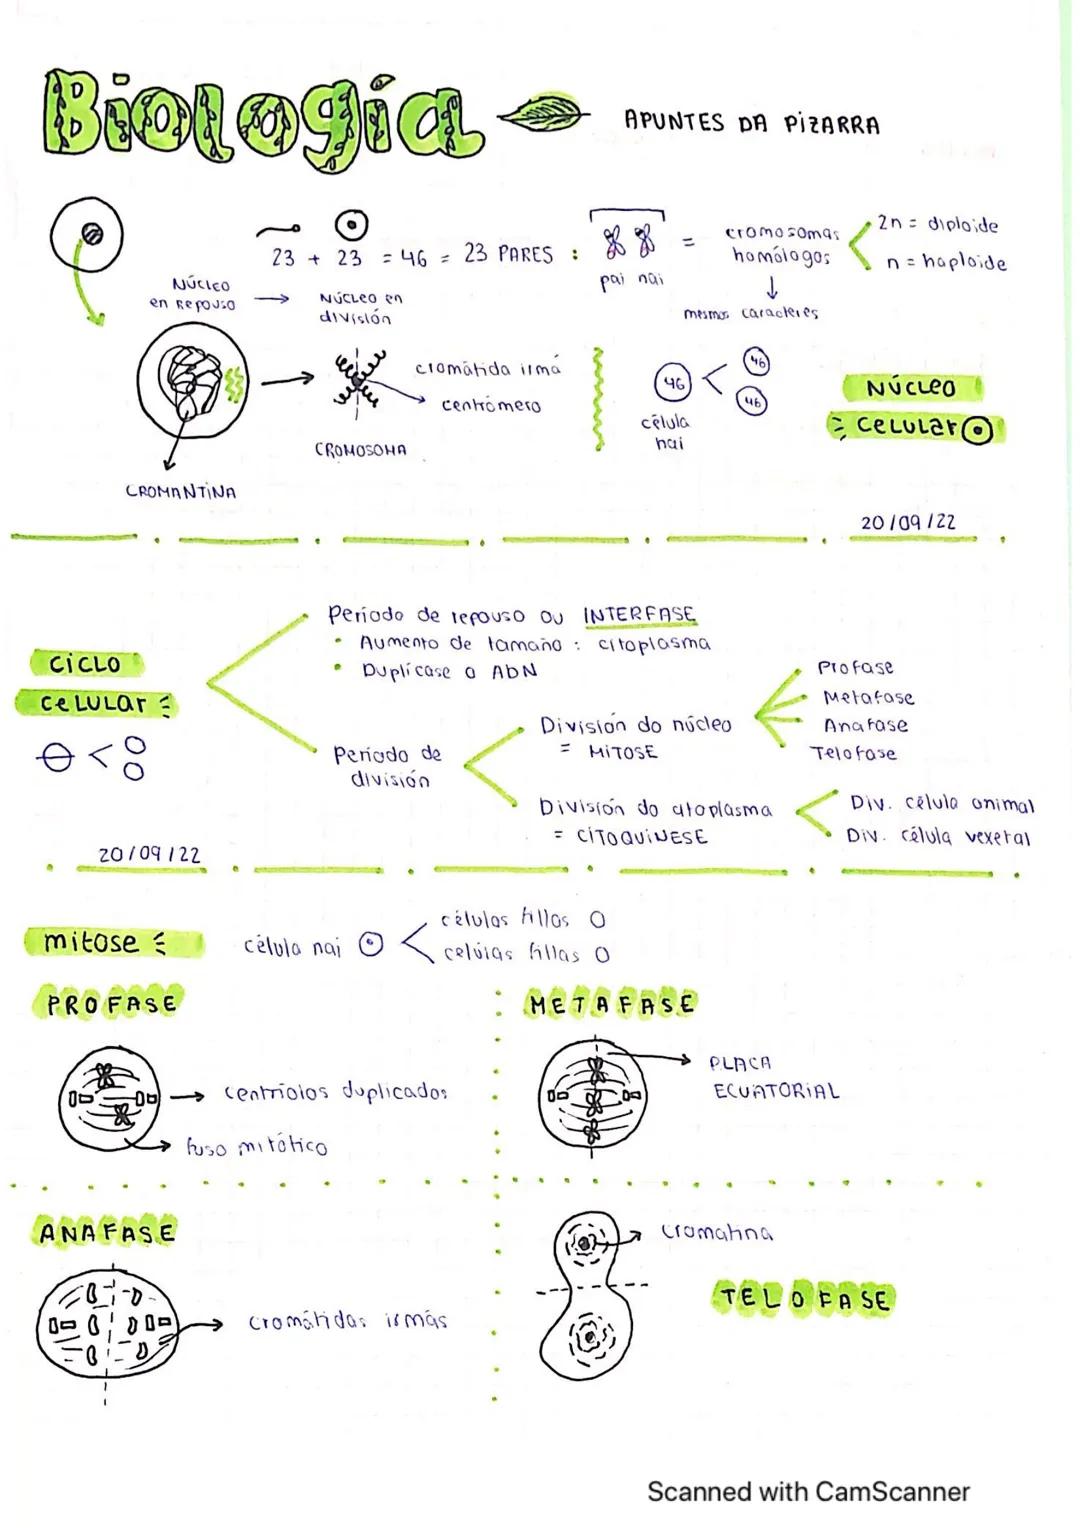 Biología
APUNTES DA PIZARRA
23 + 23 = 46 = 23 PARES :
pai nai
=
cromosomas
homólogos
2n = diploide
n = haploide
mesmos caracteres
Núcleo
en Repouso
Núcleo en
división
cromátida irmá
centrómero
CROMOSOMA
CROMANTINA
46
46
46
célula
nai
Núcleo
celular
20/09/22
Ciclo
celular
Período de repouso ou INTERFASE
• Aumento de tamaño : citoplasma
• Duplícase o ADN
Período de
división
División do núcleo
= MITOSE
Profase
Metafase
Anafase
Telofase
División do citoplasma
= CITOQUINESE
Div. célula animal
Div. célula vexetal
20/09/22
mitose
célula nai
células fillas
celúias fillas
PROFASE
centríolos duplicados
fuso mitótico
METAFASE
PLACA
ECUATORIAL
ANAFASE
cromátidas irmás
cromatina
TELOFASE
Scanned with CamScanner